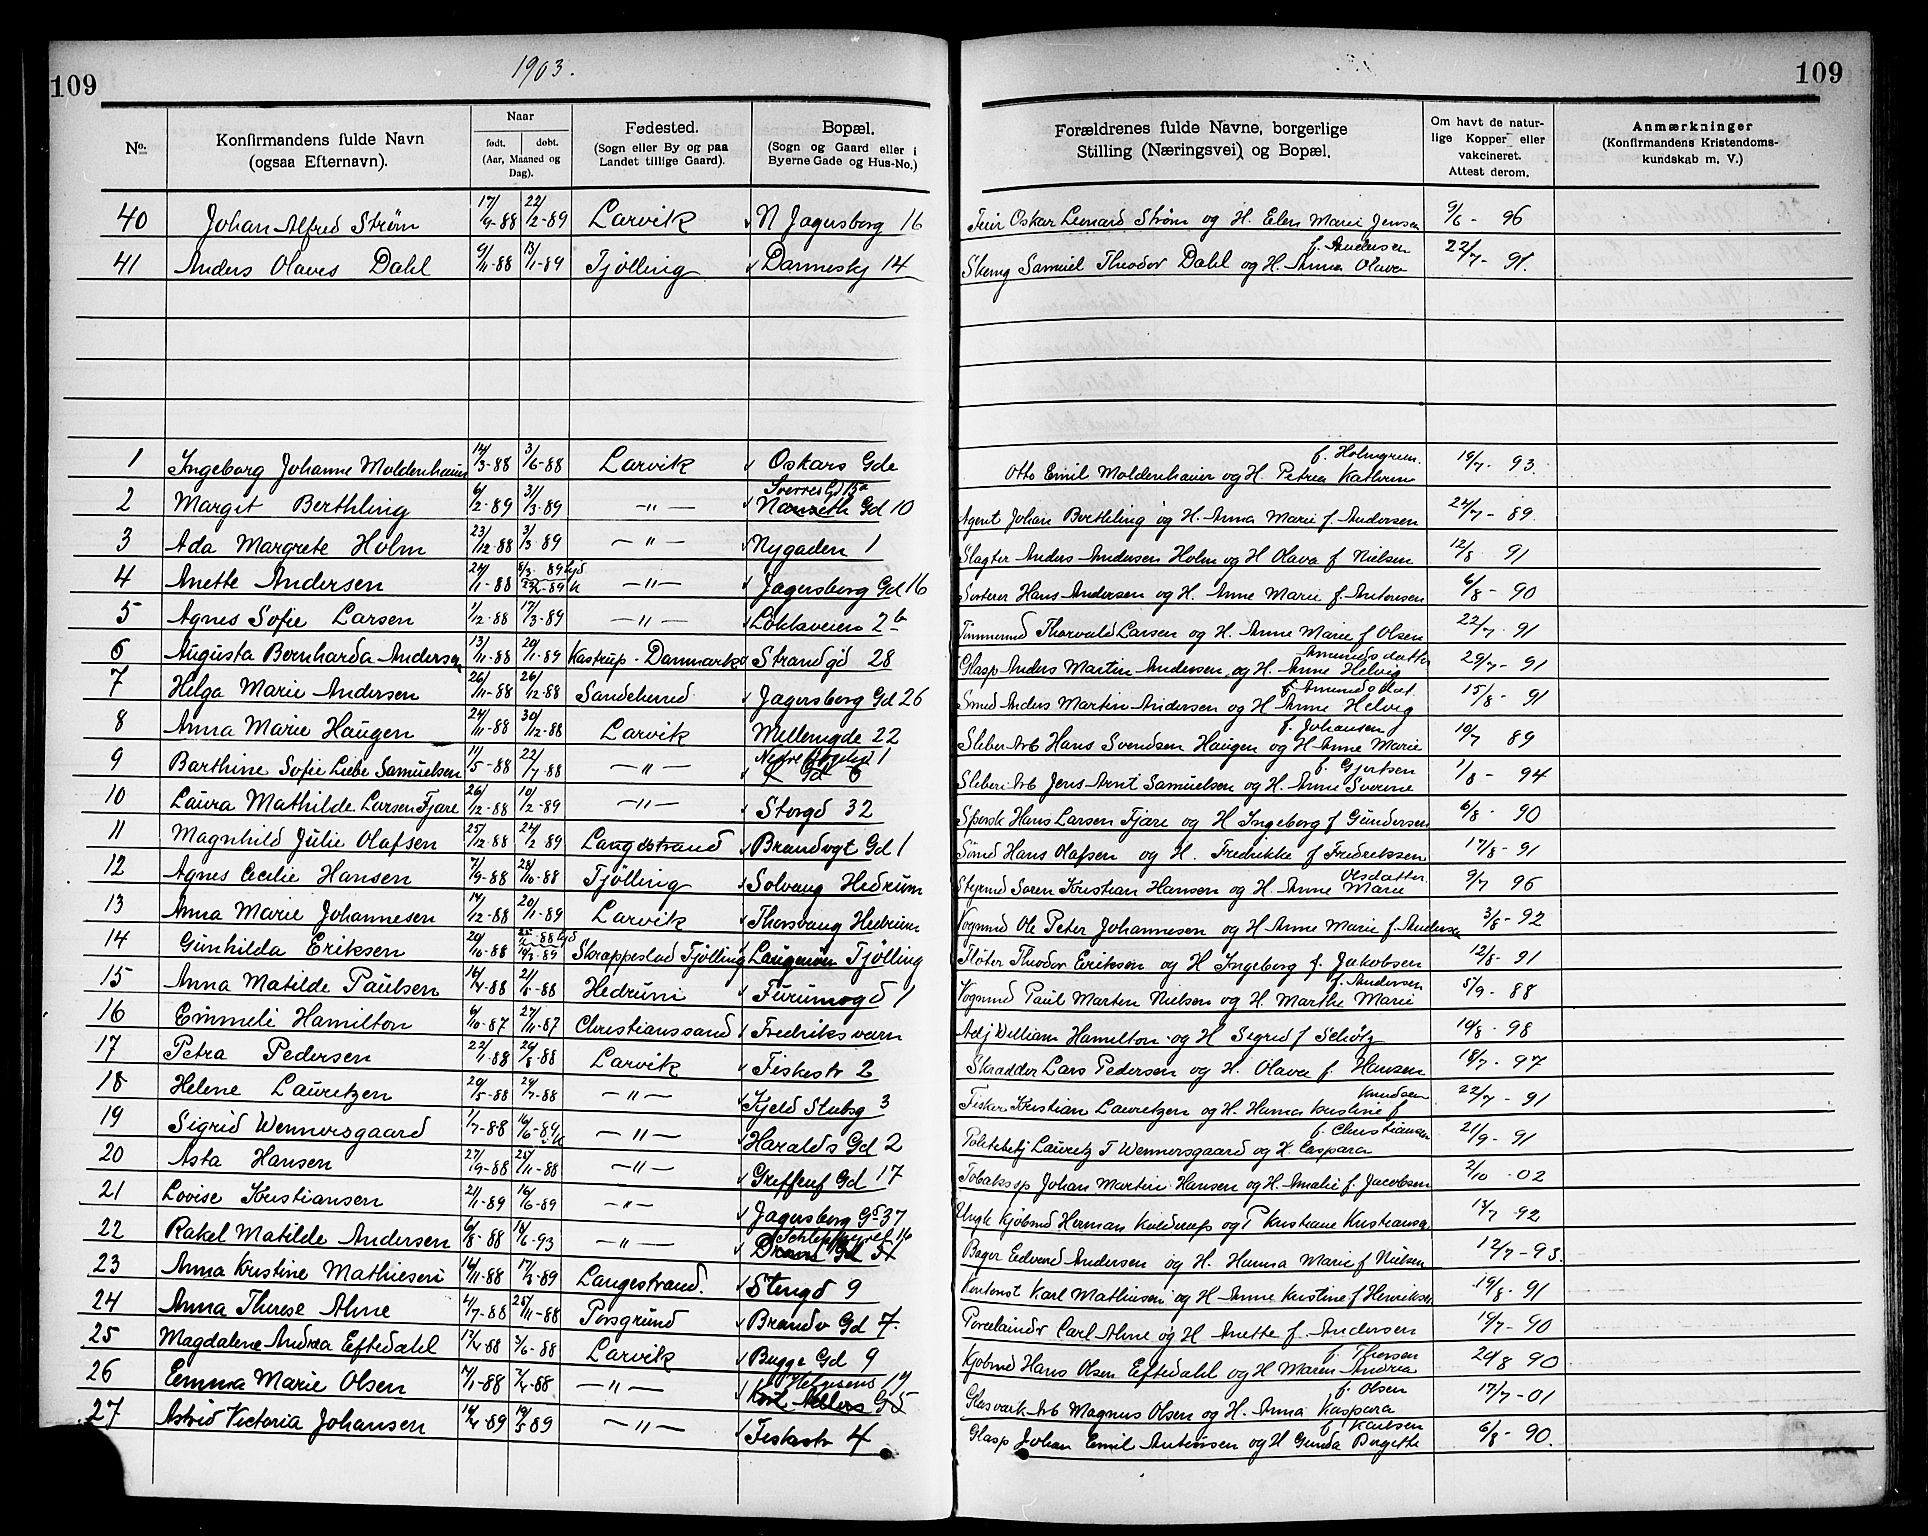 109
1903.
109
No.
Konfirmandens fulde Navn
(ogsaa Efternavn).
Naar
født. døbt.
(Aar, Maaned og
Dag).
Fødested.
(Sogn eller By og paa
Landet tillige Gaard).
Bopæl.
(Sogn og Gaard eller i
Byerne Gade og Hus-No.)
Forældrenes fulde Navne, borgerlige
Stilling (Næringsvei) og Bopæl.
Om havt de natur-
lige Kopper eller
vakcineret.
Attest derom.
Anmærkninger
(Konfirmandens Kristendoms-
kundskab m. V.)
40 Johan Alfred Strøm 17/9-88 22/2-89 Larvik N Jagersborg 16 Feier Oskar Leonard Strøm og H. Elen Marie Jensen 9/6-96
41 Anders Olaves Dahl 9/11-88 13/1-89 Tjølling Danneskj 14 Samuel Theodor Dahl og H. Anna Olava f. Andersen 22/7-91.
1 Ingeborg Johanne Moldenhauer 14/3-88 3/6-88 Larvik Oskars Gde Otto Emil Moldenhauer og H. Petrea Kathrine f. Holmgren. 19/7-93.
2 Margit Berthling 6/2-89 31/3-89 —"— Sverres Gd 15a Nanseth Gd 10 Agent Johan Berthling og H. Anna Marie f. Andersen 24/7-89.
3 Ada Margrete Holm 23/12-88 3/3-89 —"— Nygaden 1 Slagter Anders Andersen Holm og H Olava f Nielsen 12/8-91
4 Anette Andersen 24/11-88 8/3-89 —"— Jagersborg Gd 16 Sorterer Hans Andersen og H. Anne Marie f. Antonsen 6/8-90
5 Agnes Sofie Larsen 1/12-88 17/3-89 —"— Løkkeveien 2b Tømmermd Thorvald Larsen og H. Anne Marie f Olsen 22/7-91
6 Augusta Bernharda Andersen 13/11-88 20/1-89 Kastrup-Danmark Strandgd 28 Glasp Anders Martin Andersen og H. Anne Helvig Amundsdatter 29/7-91
7 Helga Marie Andersen 26/11-88 26/12-88 Sandeherred Jagersborg Gd 26 Smed Anders Martin Andersen og H Anne Helvig f. Amundsdat. 15/8-91
8 Anna Marie Haugen 24/11-88 30/12-88 Larvik Mellemgde 22 Sliber Arb Hans Svendsen Haugen og H Anne Marie f. Johansen 19/7 89
9 Barthine Sofie Liebe Samuelsen 11/5-88 22/7-88 —"— Gd 6 Sliberi Arb Jens Arnt Samuelsen og H. Anne Severine f. Gjertsen 1/8-94
10 Laura Mathilde Larsen Fjære 26/12-88 10/2-89 —"— Storgd 32 Hans Larsen Fjære og H Ingeborg f Gundersen 6/8-90
11 Magnhild Julie Olafsen 25/12-88 24/2 89 Langestrand Brandvgt Gd 1 Smed Hans Olafsen og H. Fredrikke f Fredriksen 17/8-91
12 Agnes Cecilie Hansen 7/9-88 28/10-88 Tjølling Solvang Hedrum Styrmd Søren Kristian Hansen og H. Anne Marie Olsdatter 9/7 96
13 Anna Marie Johannesen 14/12-88 20/1-89 Larvik Thorsvang Hedrum Vognmd Ole Peter Johannesen og H Anne Marie f. Andersen 3/8-92
14 Gunhilda Eriksen 20/10-88 Skrappestad Tjølling Tjølling Fløter Theodor Eriksen og H Ingeborg f. Jakobsen 12/8-91
15 Anna Matilde Paulsen 16/4-88 21/5-88 Hedrum Furumogd 1 Vognmd Paul Martin Nielsen og H. Marthe Marie f. Andersen 5/9-88
16 Emmeli Hamilton 6/10-87 27/11-87 Christianssand Fredriksværn Adj William Hamilton og H Sigrid f Schøtz 19/8-98
17 Petra Pedersen 22/1-88 24/8-88 Larvik Fiskestr 2 Skrædder Lars Pedersen og H. Olava f. Hansen 18/7-97
18 Helene Lauritzen 20/5-88 24/7-88 —"— Kjeld Stubsg 3 Fisker Kristian Lauritzen og H. Hanna Kristine f Knudsen 22/7-91
19 Sigrid Wennersgaard 1/7-88 16/6-89 —"— Haralds Gd 2 Politibetj Lauritz T Wennersgaard og H. Caspara f. Christiansen 21/9-91
20 Asta Hansen 27/9-88 25/11-88 —"— Greffenf Gd 17 Tobakssp Johan Martin Hansen og H. Amalie f. Jacobsen 2/10-02
21 Lovise Kristiansen 21/1-89 16/6-89 —"— Jagersborg Gd 37 Ungk Kjøbmd Herman Kielderup og P Kristiane Kristiansen 14/7 92
22 Rakel Matilde Andersen 6/8-88 18/6-93 —"— Gd Bager Edvard Andersen og H. Hanna Marie f Nielsen 12/7-93.
23 Anna Kristine Mathiesen 16/11-88 17/3-89 Langestrand. Stengd 9 Karl Mathiesen og H Anne Kristine f Henriksen 19/8-91
24 Anna Therese Ahne 4/7-88 25/11-88 Porsgrund Brandv Gd 7. Porcelaindr Carl Ahne og H Anette f. Andersen 19/7-90
25 Magdalene Andrea Eftedahl 12/4-88 3/6-88 Larvik Bugge Gd 9 Kjøbmd Hans Olsen Eftedahl og H Maren Andrea f. Thorsen 24/8 90
26 Emma Marie Olsen 7/1-88 2/4-88 —"— Karl Gd 5 Glasværk Arb Magnus Olsen og H. Anna Kaspara f. Olsen 17/7-01
27 Astrid Victoria Johansen 16/4-89 19/5 89 —"— Fiskestr 4 Glasp Johan Emil Antonsen og H Gunda Birgitte f Karlsen 6/8-90.